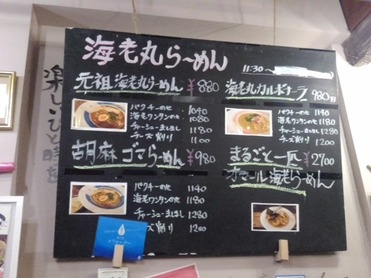 海老丸らーめん
11:30〜
元祖海老丸らーめん ¥880
パクチーのせ 1040
海老ワンタンのせ 1080
チャーシューましまし 1180
チーズ削り 1100
海老丸カルボナーラ 980
パクチーのせ 1140
海老ワンタンのせ 1180
チャーシューましまし 1280
チーズ削り 1200
胡麻ゴマらーめん ¥980
パクチーのせ 1140
海老ワンタンのせ 1180
チャーシューましまし 1280
チーズ削り 1200
まるごと一匹 ¥2700
オマール海老らーめん
楽しいひと時を